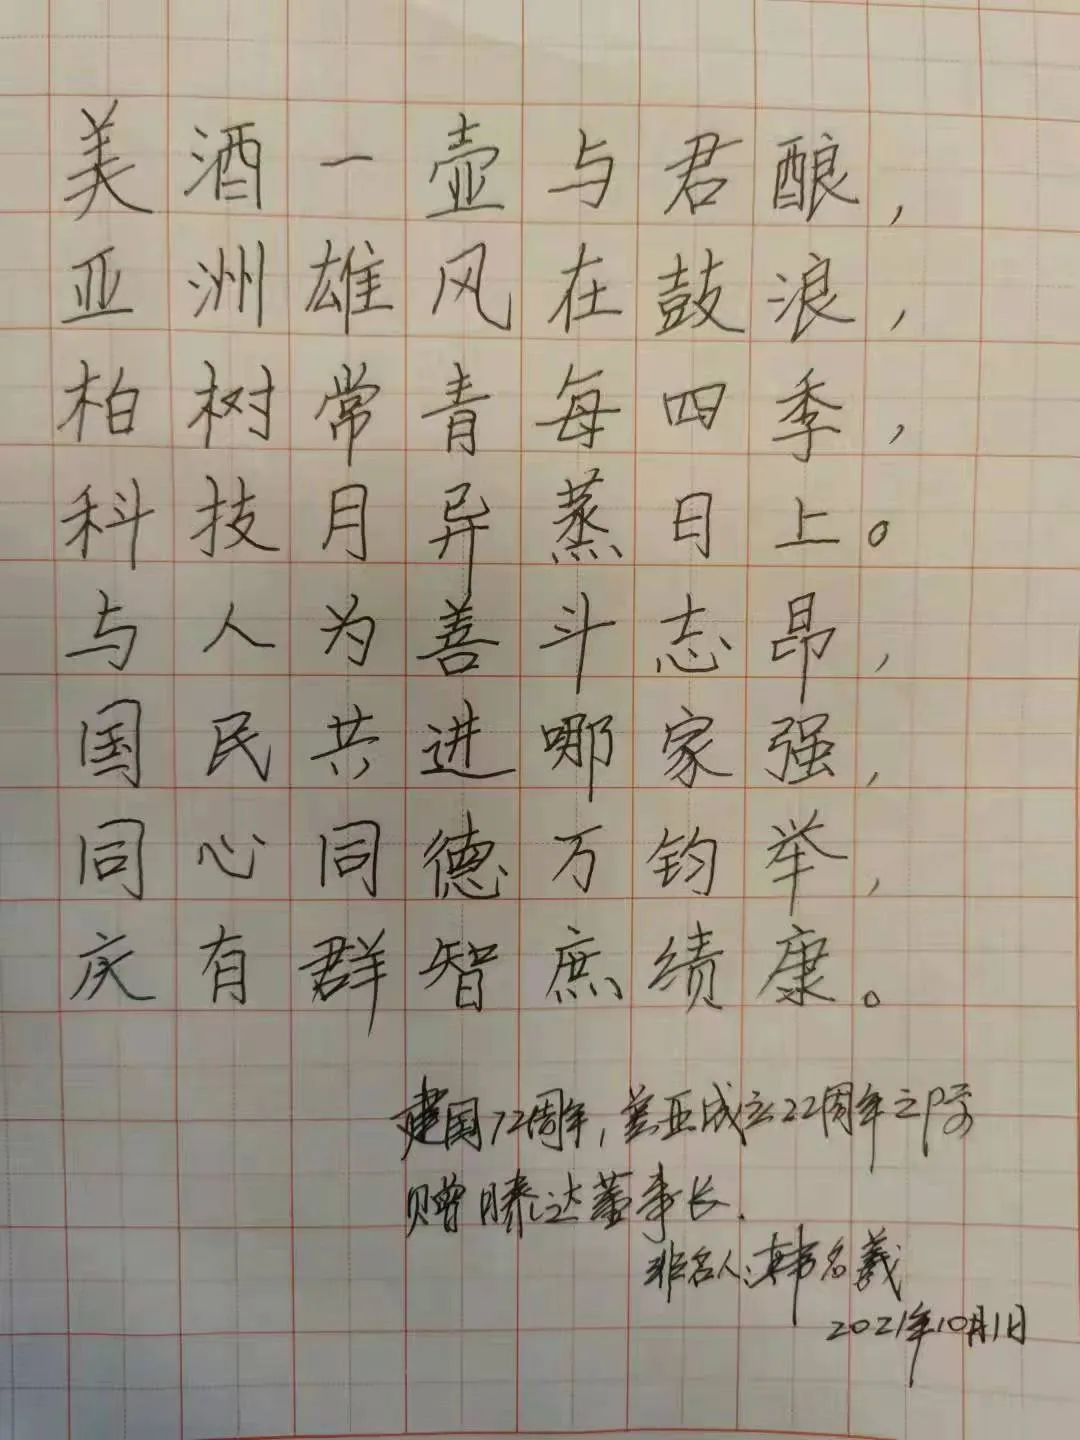 美酒一壶与君酿，
亚洲雄风在鼓浪，
柏树常青每四季，
科技月异蒸日上。
与人为善斗志昂，
国民共进哪家强，
同心同德万钧举，
庆有群智庶绩康。
建国72周年，美亚成立22周年之际
赠滕达董事长.
非名人:韩名羲
2021年10月1日